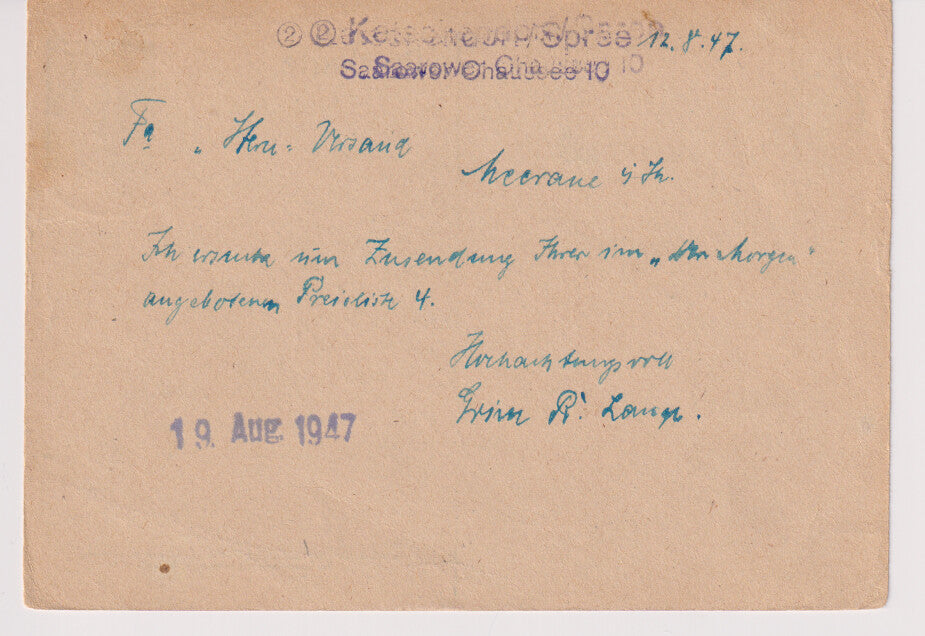 ② Ketschendorf/Spree 12.8.47.
Saarower Chaussee 10
Fa „Stern“ Versand
Meerane i/Th.
Ich ersuche um Zusendung Ihrer im „Der Morgen“
angebotenen Preisliste 4.
Hochachtungsvoll
Lange.
19. Aug. 1947